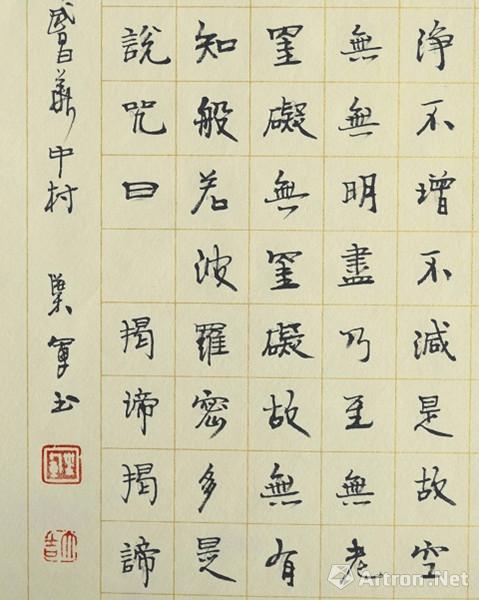 淨不增不減是故空
無無明盡乃至無老
罣礙無罣礙故無有
知般若波羅密多是
說咒曰 揭諦揭諦
中村 軍書
Artron.Net